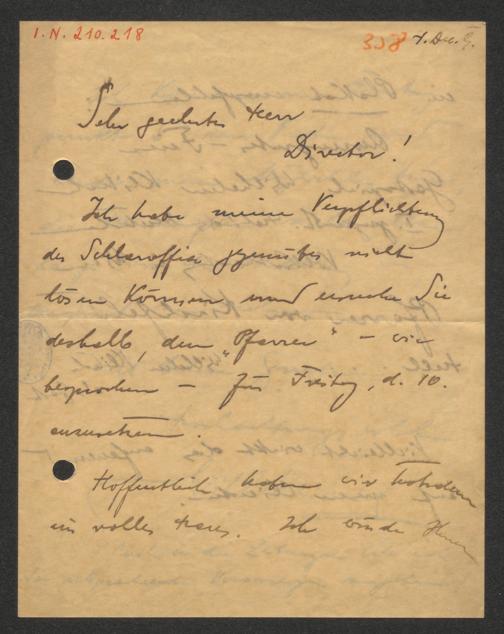 I.N. 210.218
358 7. Dec.
Sehr geehrter Herr
Director!
Ich habe meine Verpflichtung
der Schlaraffia gegenüber nicht
lösen können und ersuche Sie
deshalb, den "Pfarrer" – wie
besprochen – für Freitag, d. 10.
anzusetzen.
Hoffentlich haben wir trotzdem
ein volles Haus. Ich würde Ihnen